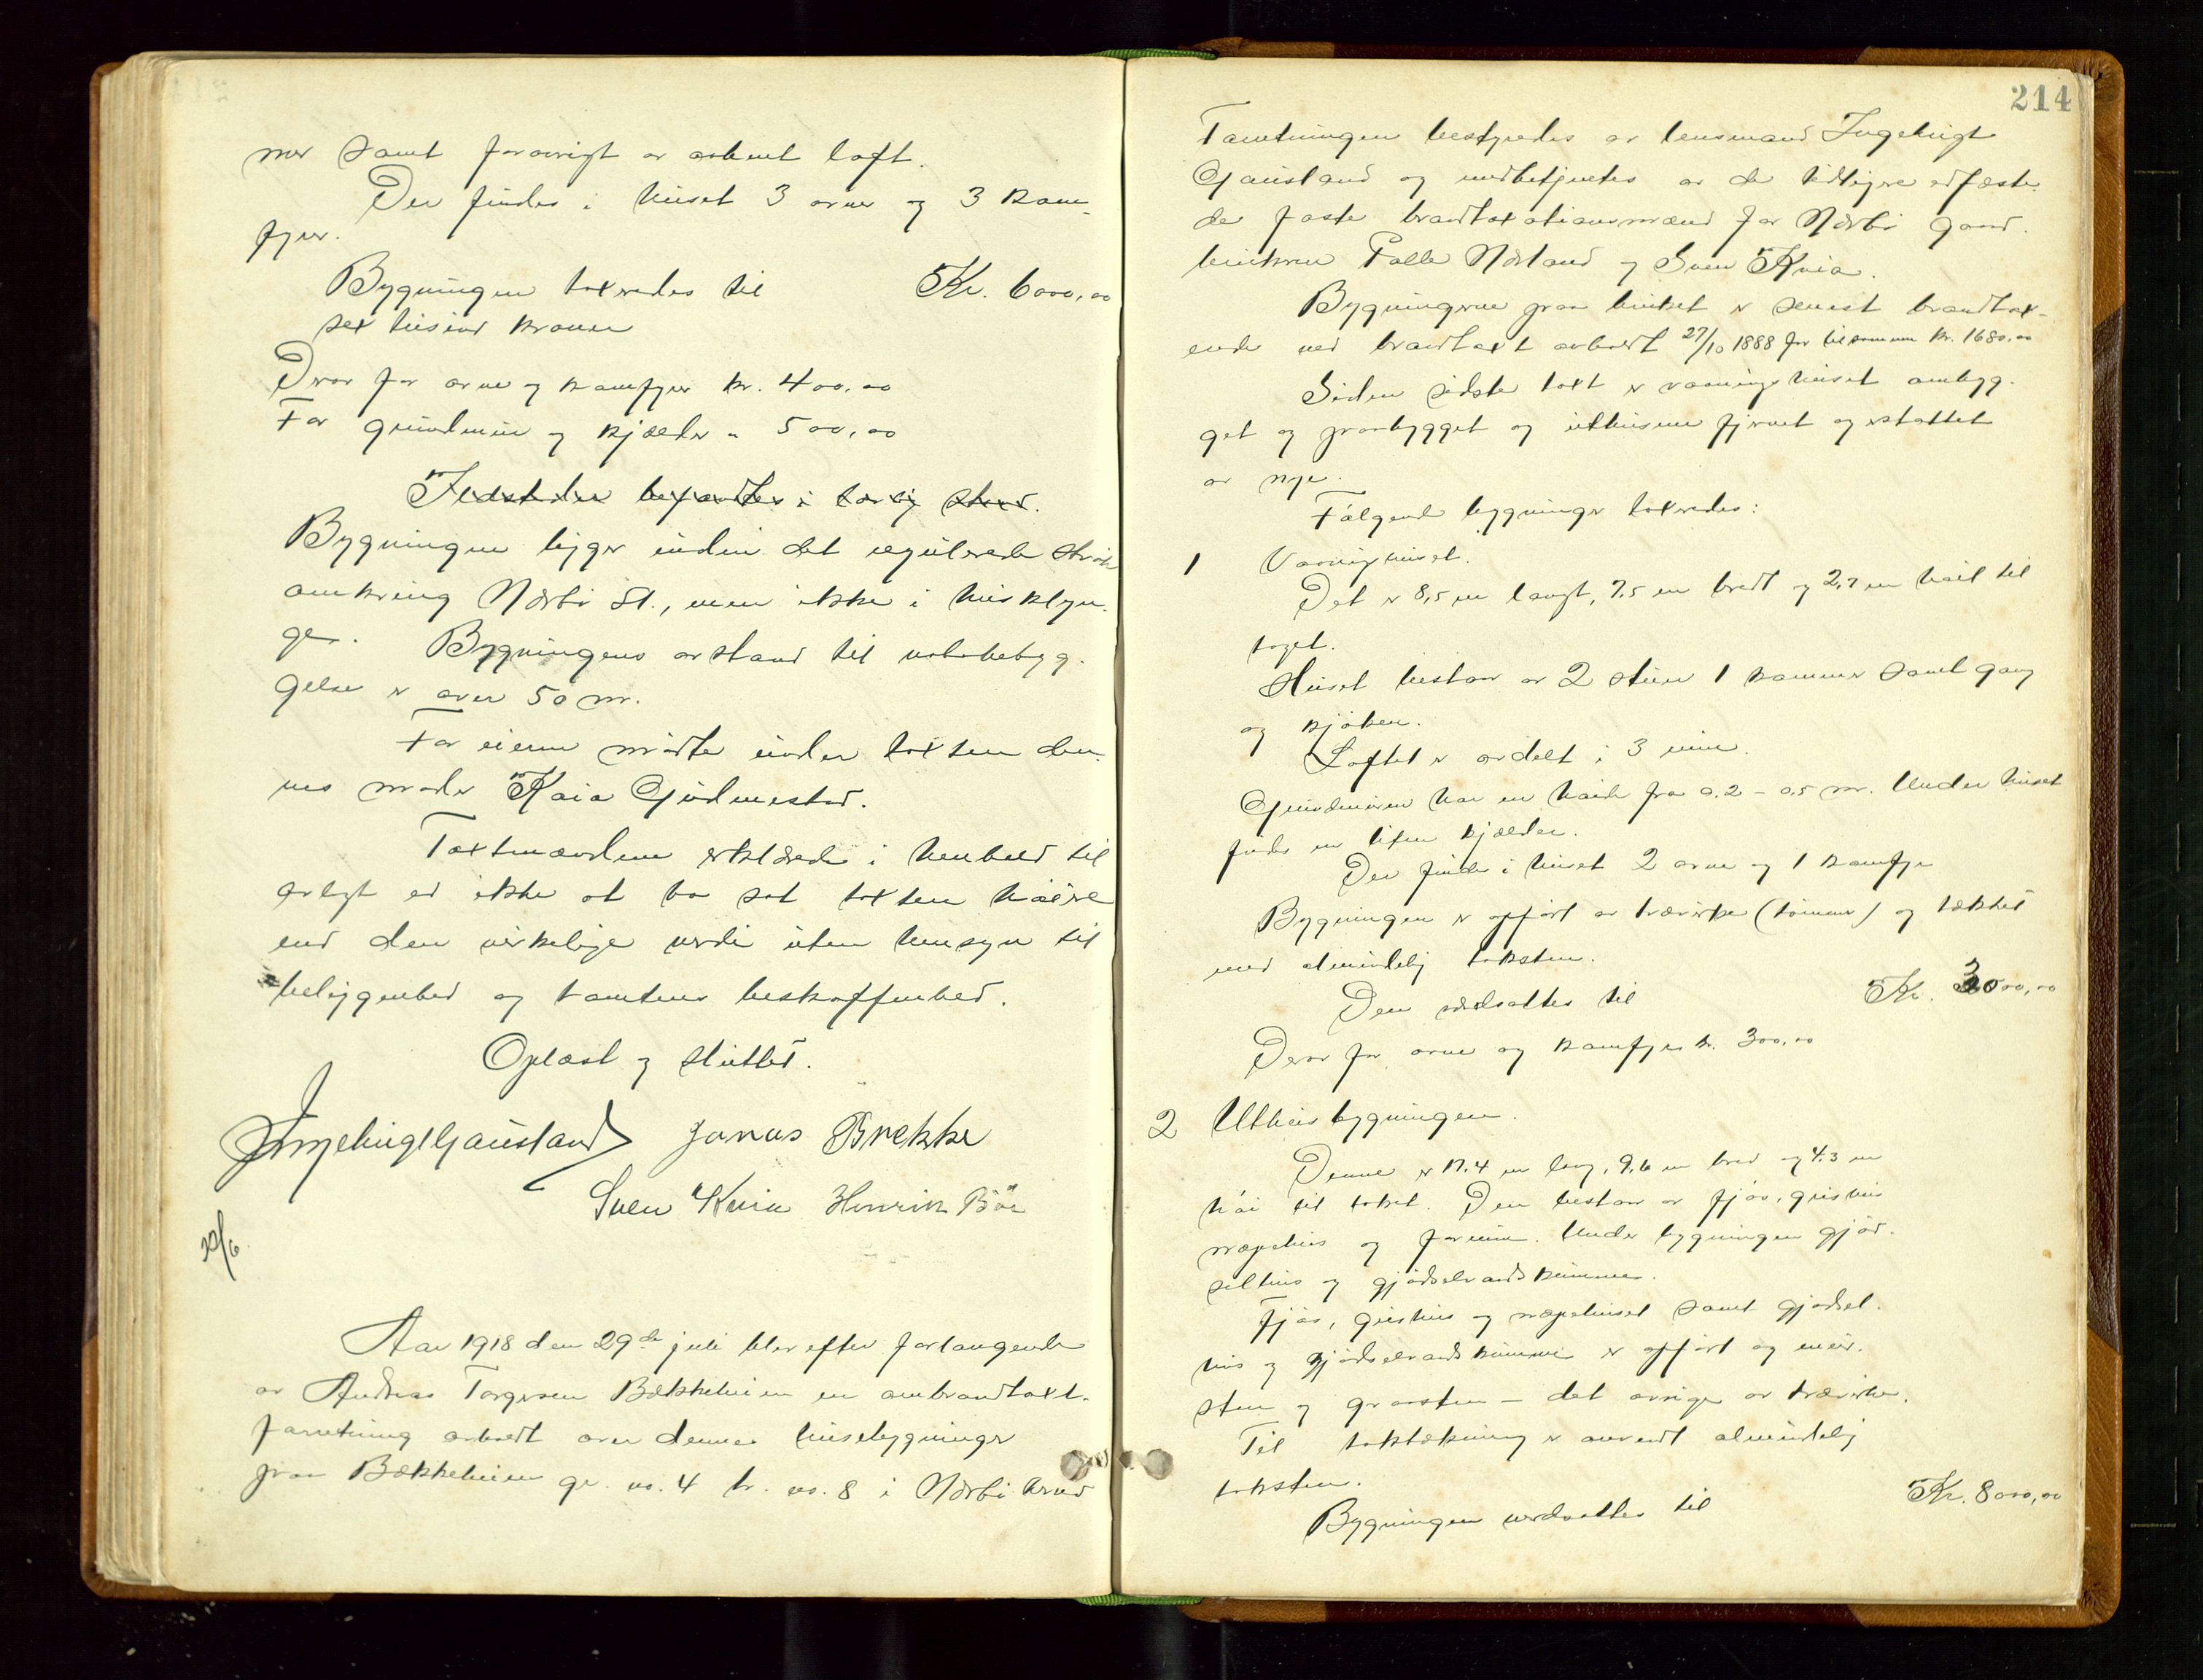 mer samt forøvrigt av aapent loft.
Der findes i huset 3 ovner og 3 kom-
fyrer.
Bygningen taxeredes til Kr. 6000,00
sex tusind kroner
Derav for ovne og komfyrer kr. 400,00
For grundmur og kjælder " 500,00
Ildstedene befandtes i lovlig stand.
Bygningen ligger inden det regulerede strøk
omkring Nærbø St., men ikke i husklyn-
ge. Bygningens avstand til nabobebyg-
gelse er over 50 m.
For eieren møtte under taxten den-
nes moder Kaia Gudmestad.
Taxtmændene erklærede i henhold til
avlagt ed ikke at ha sat taxten høiere
end den virkelige verdi uten hensyn til
beliggenhed og tomtens beskaffenhed.
Oplæst og sluttet.
Ingebrigt Gausland Jonas Brekke
Sven Kvia Henrik Bøe
Aar 1918 den 29de juli blev efter forlangende
av Andreas Torgersen Bækkeheien en ombrandtaxt-
forretning avholdt over dennes husebygninger
paa Bækkeheien gr. no. 4 br. no. 8 i Nærbø sund
214
Forretningen bestyredes av lensmand Ingebrigt
Gausland og medbetjentes av de tidligere edfæste-
de faste brandtaxationsmænd for Nærbø gaard-
brukerne Palle Nærland og Sven Kvia.
Bygningerne paa bruket er senest brandtax-
erede ved brandtaxt avholdt 27/10 1888 for tilsammen kr. 1680,00
Siden sidste taxt er vaaningshuset ombyg-
get og paabygget og uthusene fjernet og erstattet
av nye.
Følgende bygninger taxeredes:
1 Vaaningshuset.
Det er 8,5 m langt, 7,5 m bredt og 2,7 m høit til
taget.
Huset bestaar av 2 stuer 1 kammer samt gang
og kjøken.
Loftet er avdelt i 3 rum.
Grundmuren har en høide fra 0.2 – 0.5 m. Under huset
findes en liten kjælder.
Der findes i huset 2 ovne og 1 komfyr
Bygningen er opført av trævirke (tømmer) og tækket
med almindelig taksten.
Den værdsattes til Kr. 3000,00
Derav for ovne og komfyr kr. 300,00
2 Uthusbygningen.
Denne er 17.4 m lang, 9,6 m bred og 4.3 m
høi til taket. Den bestaar av fjøs, grishus
næpehus og forrum. Under bygningen gjød-
selhus og gjødselvandskumme.
Fjøs, grishus og næpehuset samt gjødsel-
hus og gjødselvandskumme er opført og mur-
sten og graasten – det øvrige av trævirke.
Til taktækning er anvendt almindelig
taksten.
Bygningen verdsattes til Kr. 8000,00